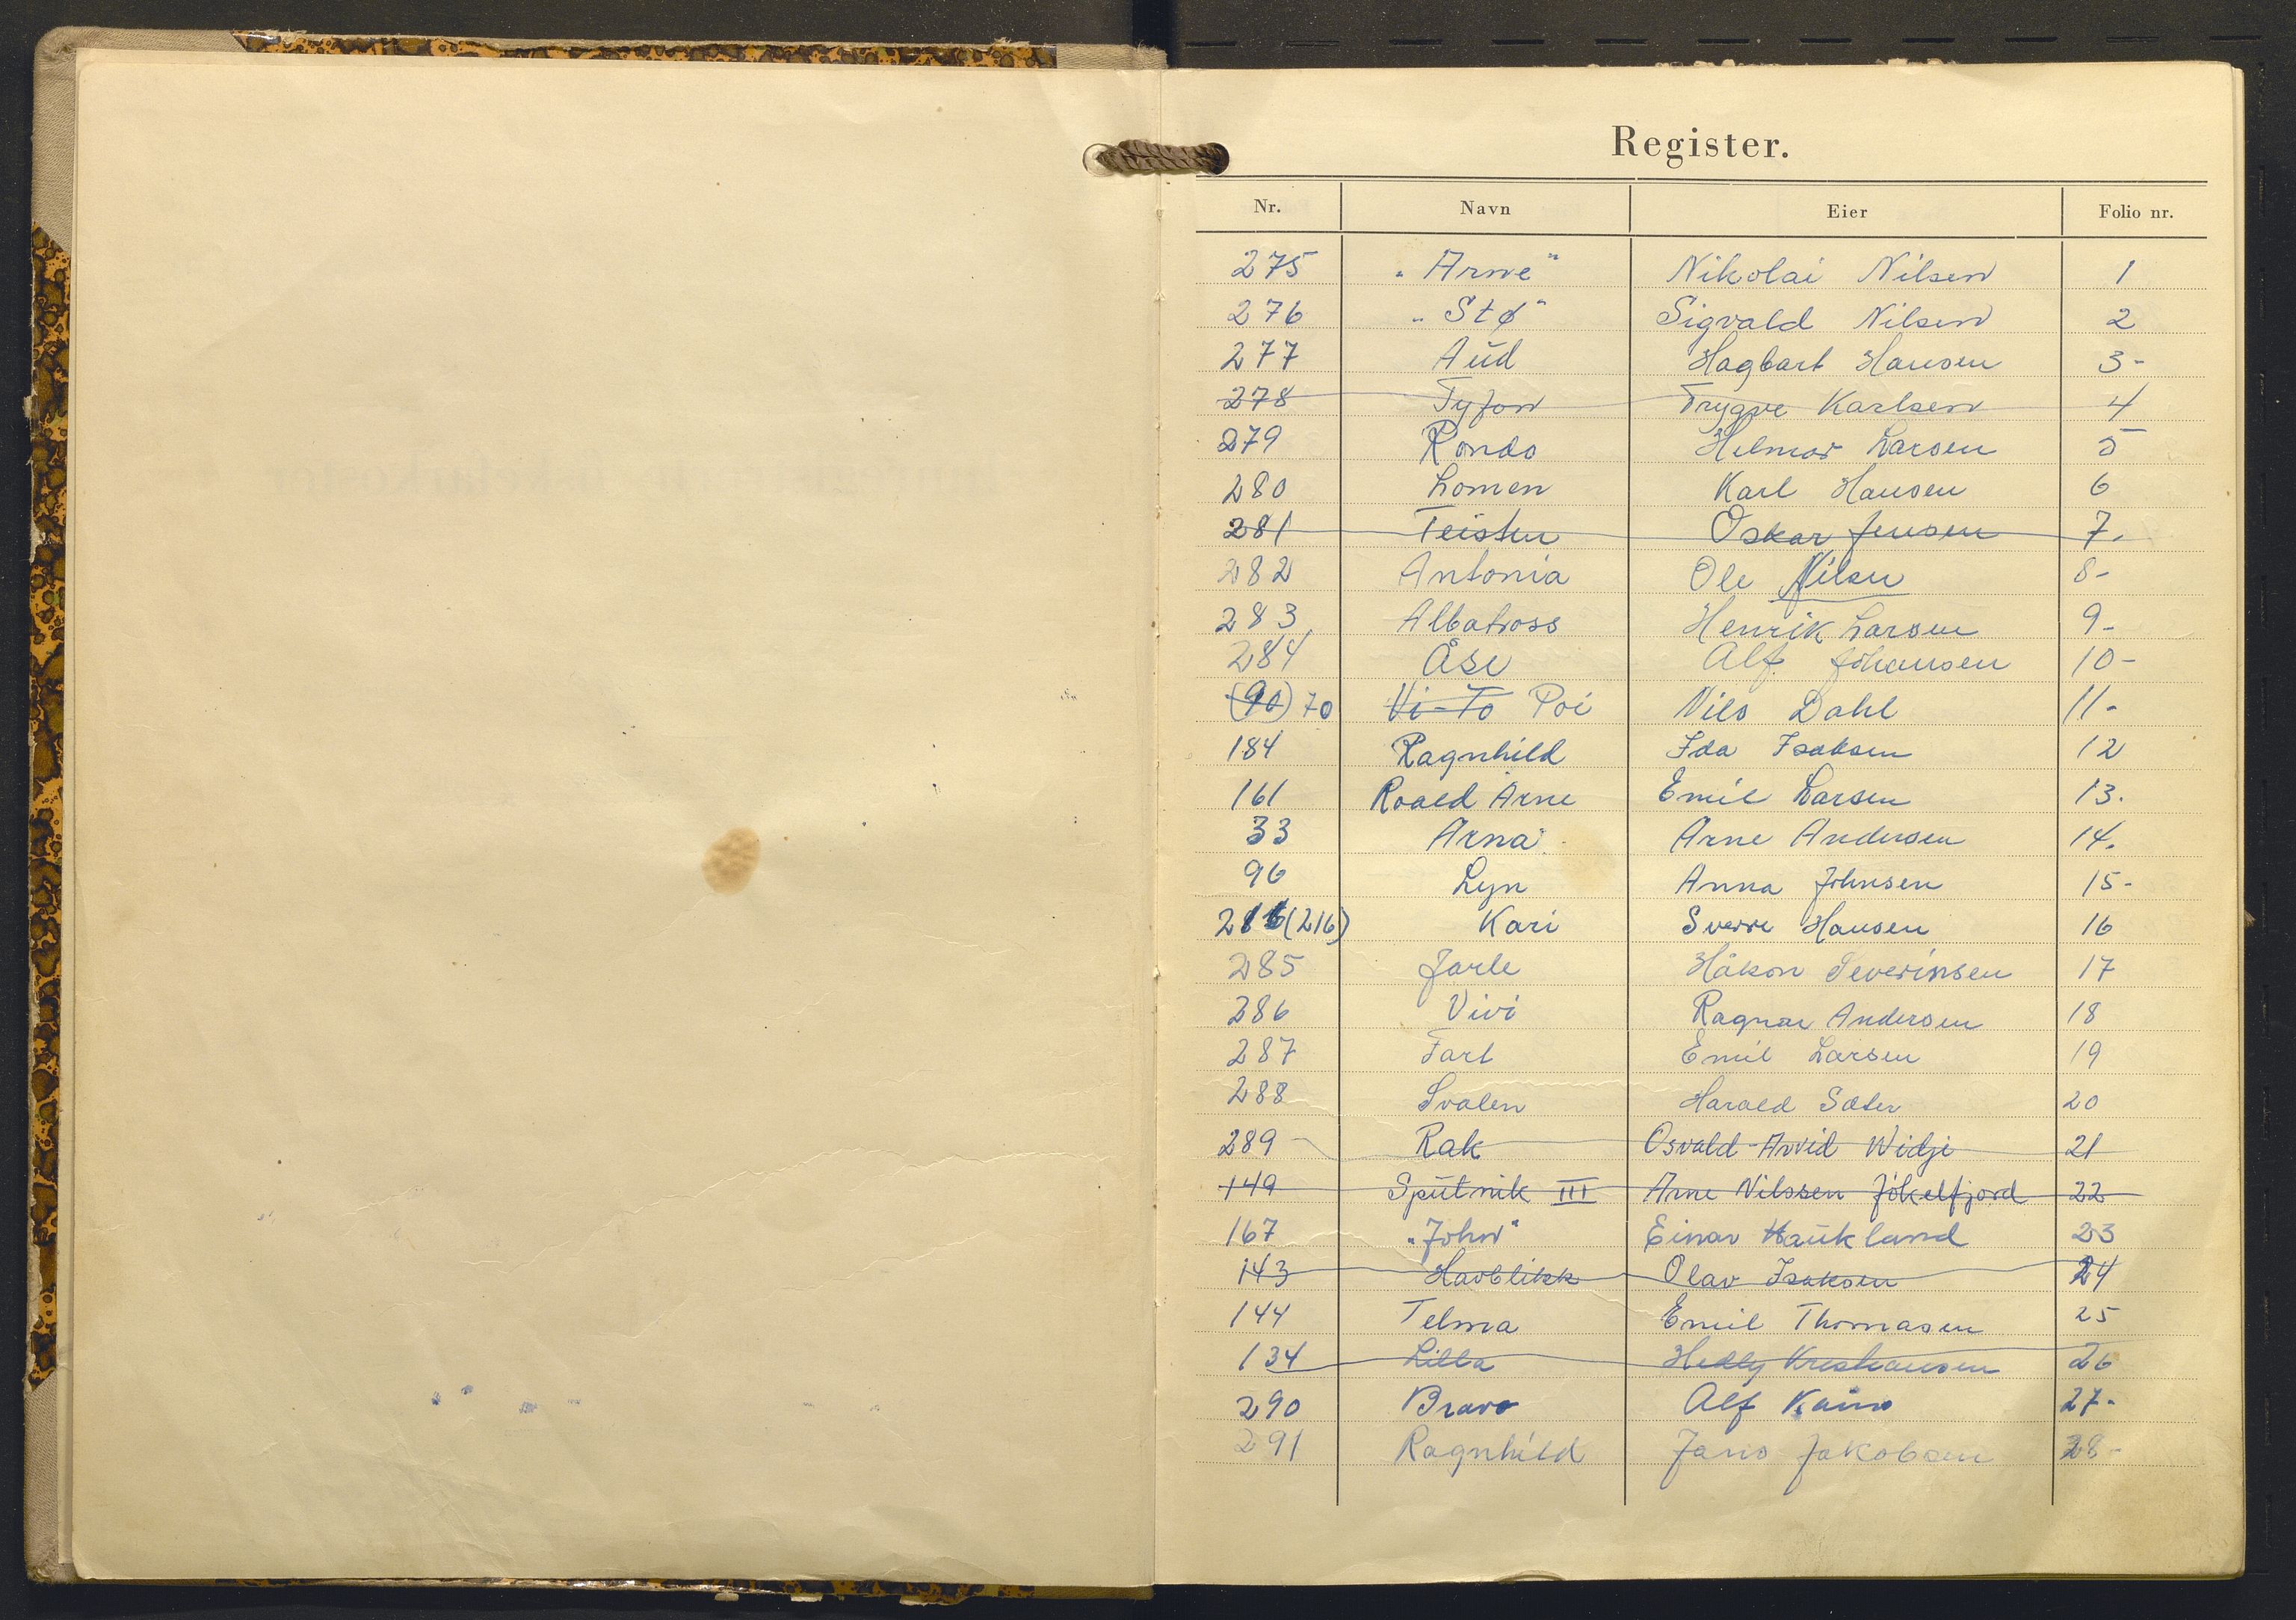 Register.
Nr. Navn Eier Folio nr.
275 „Arne" Nikolai Nilsen 1
276 „Stø" Sigvald Nilsen 2
277 Aud Hagbart Hansen 3-
278 Tyfon Trygve Karlsen 4
279 Rondo Helmar Larsen 5
280 Lomen Karl Hansen 6
281 Teisten Oskar Jensen 7.
282 Antonia Ole Nilsen 8-
283 Albatross Henrik Larsen 9-
284 Åse Alf Johansen 10-
(90) 70 Vi-To Poi Nils Dahl 11-
184 Ragnhild Ida Isaksen 12
161 Roald Arne Emil Larsen 13.
33 Arna Arne Andersen 14.
96 Lyn Anna Johnsen 15-
216 (216) Kari Sverre Hansen 16
285 Jarle Håkon Severinsen 17
286 Vivi Ragnar Andersen 18
287 Fart Emil Larsen 19
288 Svalen Harald Sæter 20
289 Rak Osvald Arvid Widje 21
149 Sputnik III Arne Nilssen Jøkelfjord 22
167 „John" Einar Haukland 23
143 Havblikk Olav Isaksen 24
144 Telma Emil Thomasen 25
134 Lilla Hedly Kristiansen 26
290 Bravo Alf 27-
291 Ragnhild Jakobsen 28-